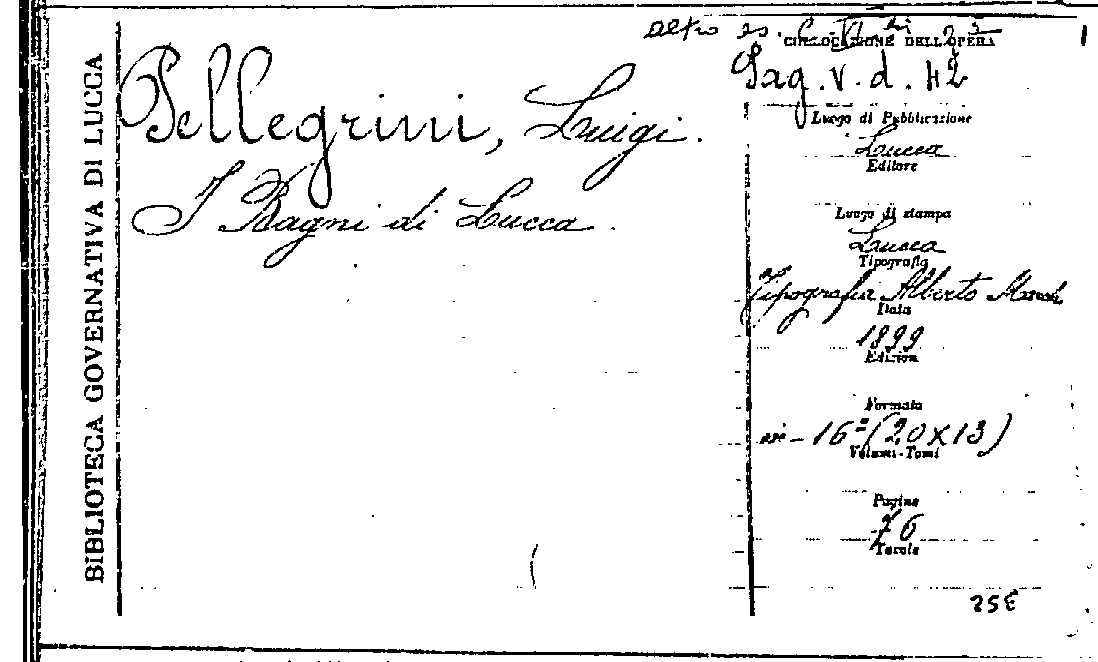 BIBLIOTECA GOVERNATIVA DI LUCCA
Pellegrini, Luigi.
I Bagni di Lucca.
altro es.
COLLOCAZIONE DELL'OPERA
Pag. v. d. 42
Luogo di Pubblicazione
Lucca
Editore
Luogo di stampa
Lucca
Tipografia
Tipografia Alberto Marchi
Data
1899
Edizione
Formato
in-16° (20x13)
Volumi-Tomi
Pagine
76
Tavole